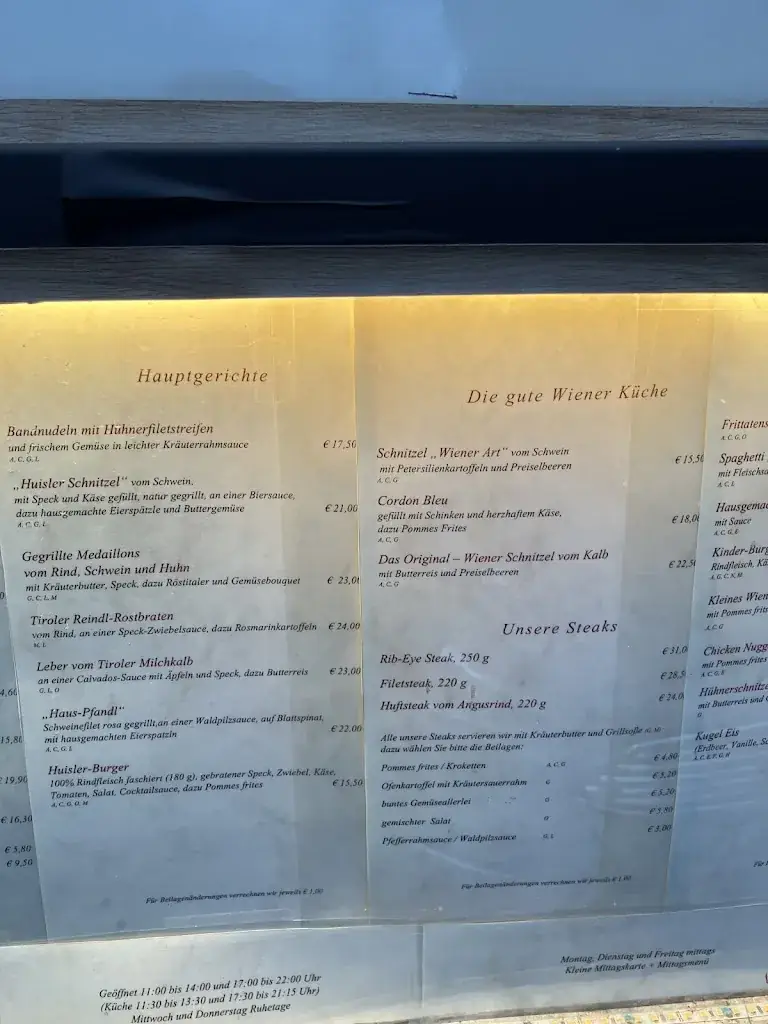 Hauptgerichte
Bandnudeln mit Hühnerfiletstreifen
und frischem Gemüse in leichter Kräuterrahmsauce € 17,50
A, C, G, L
„Huisler Schnitzel" vom Schwein,
mit Speck und Käse gefüllt, natur gegrillt, an einer Biersauce,
dazu hausgemachte Eierspätzle und Buttergemüse € 21,00
A, C, G, L
Gegrillte Medaillons
vom Rind, Schwein und Huhn
mit Kräuterbutter, Speck, dazu Röstitaler und Gemüsebouquet € 23,00
G, C, L, M
Tiroler Reindl-Rostbraten
vom Rind, an einer Speck-Zwiebelsauce, dazu Rosmarinkartoffeln € 24,00
M, L
Leber vom Tiroler Milchkalb
an einer Calvados-Sauce mit Äpfeln und Speck, dazu Butterreis € 23,00
G, L, O
„Haus-Pfandl"
Schweinefilet rosa gegrillt,an einer Waldpilzsauce, auf Blattspinat,
mit hausgemachten Eierspatzln € 22.00
A, C, G, L
Huisler-Burger
100% Rindfleisch faschiert (180 g), gebratener Speck, Zwiebel, Käse,
Tomaten, Salat, Cocktailsauce, dazu Pommes frites € 15,50
A, C, G, O, M
Für Beilagenänderungen verrechnen wir jeweils € 1,00
4,60
15,80
€ 19,90
€ 16,30
€ 5,80
€ 9,50
Die gute Wiener Küche
Schnitzel „Wiener Art" vom Schwein
mit Petersilienkartoffeln und Preiselbeeren € 15,50
A, C, G
Cordon Bleu
gefüllt mit Schinken und herzhaftem Käse,
dazu Pommes Frites € 18,00
A, C, G
Das Original – Wiener Schnitzel vom Kalb
mit Butterreis und Preiselbeeren € 22,50
A, C, G
Unsere Steaks
Rib-Eye Steak, 250 g € 31,0
Filetsteak, 220 g € 28,5
Huftsteak vom Angusrind, 220 g € 24,0
Alle unsere Steaks servieren wir mit Kräuterbutter und Grillsoße (G, M)
dazu wählen Sie bitte die Beilagen:
Pommes frites / Kroketten A, C, G € 4,80
Ofenkartoffel mit Kräutersauerrahm G € 5,20
buntes Gemüseallerlei G € 5,20
gemischter Salat O € 5,80
Pfefferrahmsauce / Waldpilzsauce G, L € 3,00
Für Beilagenänderungen verrechnen wir jeweils € 1,00
Frittatens
A, C, G, O
Spaghetti
mit Fleischsa
A, C, L
Hausgemac
mit Sauce
A, C, G, E
Kinder-Burg
Rindfleisch, Kä
A, G, C, K, M
Kleines Wien
mit Pommes frit
A, C, G
Chicken Nugg
mit Pommes frites
A, C, G, E
Hühnerschnitze
mit Butterreis und G
Kugel Eis
(Erdbeer, Vanille, Sc
A, C, E, F, G, H
Für B
Geöffnet 11:00 bis 14:00 und 17:00 bis 22:00 Uhr
(Küche 11:30 bis 13:30 und 17:30 bis 21:15 Uhr)
Mittwoch und Donnerstag Ruhetage
Montag, Dienstag und Freitag mittags
Kleine Mittagskarte + Mittagsmenü